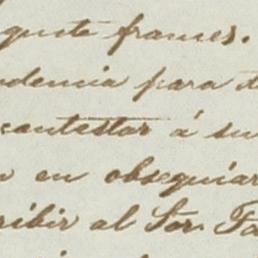 guste frances.
dencia para
contestar á su
en obsequiar
ribir al Sor. Fa